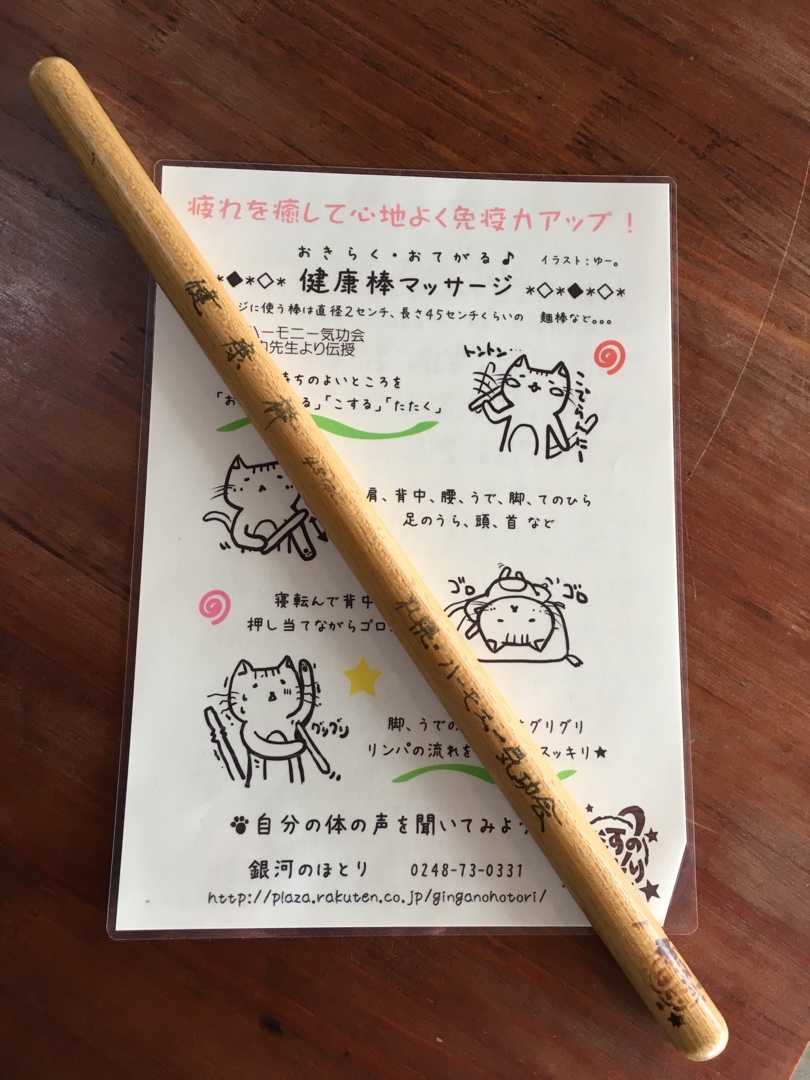 疲れを癒して心地よく免疫力アップ！
おきらく・おてがる♪ イラスト：ゆー。
*◆*◇* 健康棒マッサージ *◇*◆*◇*
ジに使う棒は直径2センチ、長さ45センチくらいの 麺棒など。。。
ハーモニー気功会
先生より伝授
ちのよいところを
「お る」「こする」「たたく」
トントン…
こでらんにー
肩、背中、腰、うで、脚、てのひら
足のうら、頭、首 など
寝転んで背中
押し当てながらゴロ
ゴロ ゴロ
グリグリ
脚、うでの グリグリ
リンパの流れを スッキリ★
自分の体の声を聞いてみよう
銀河のほとり 0248-73-0331
http://plaza.rakuten.co.jp/ginganohotori/
健康棒
札幌・ハーモニー気功会